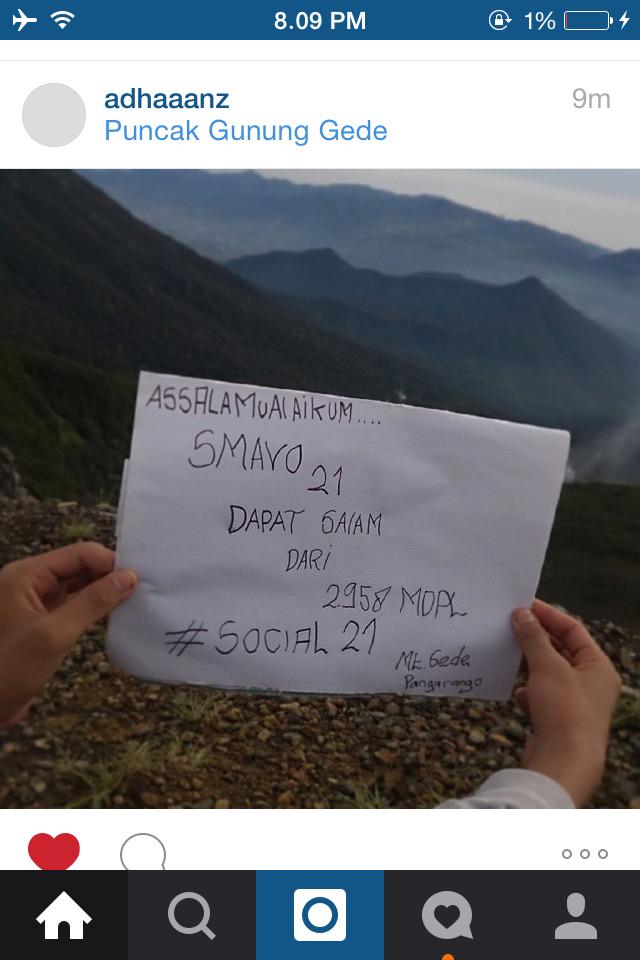 8.09 PM
1%
adhaaanz
9m
Puncak Gunung Gede
ASSALAMUALAIKUM....
SMAVO
21
DAPAT SALAM
DARI
2958 MDPL
#SOCIAL 21
Mt. Gede
Pangarango